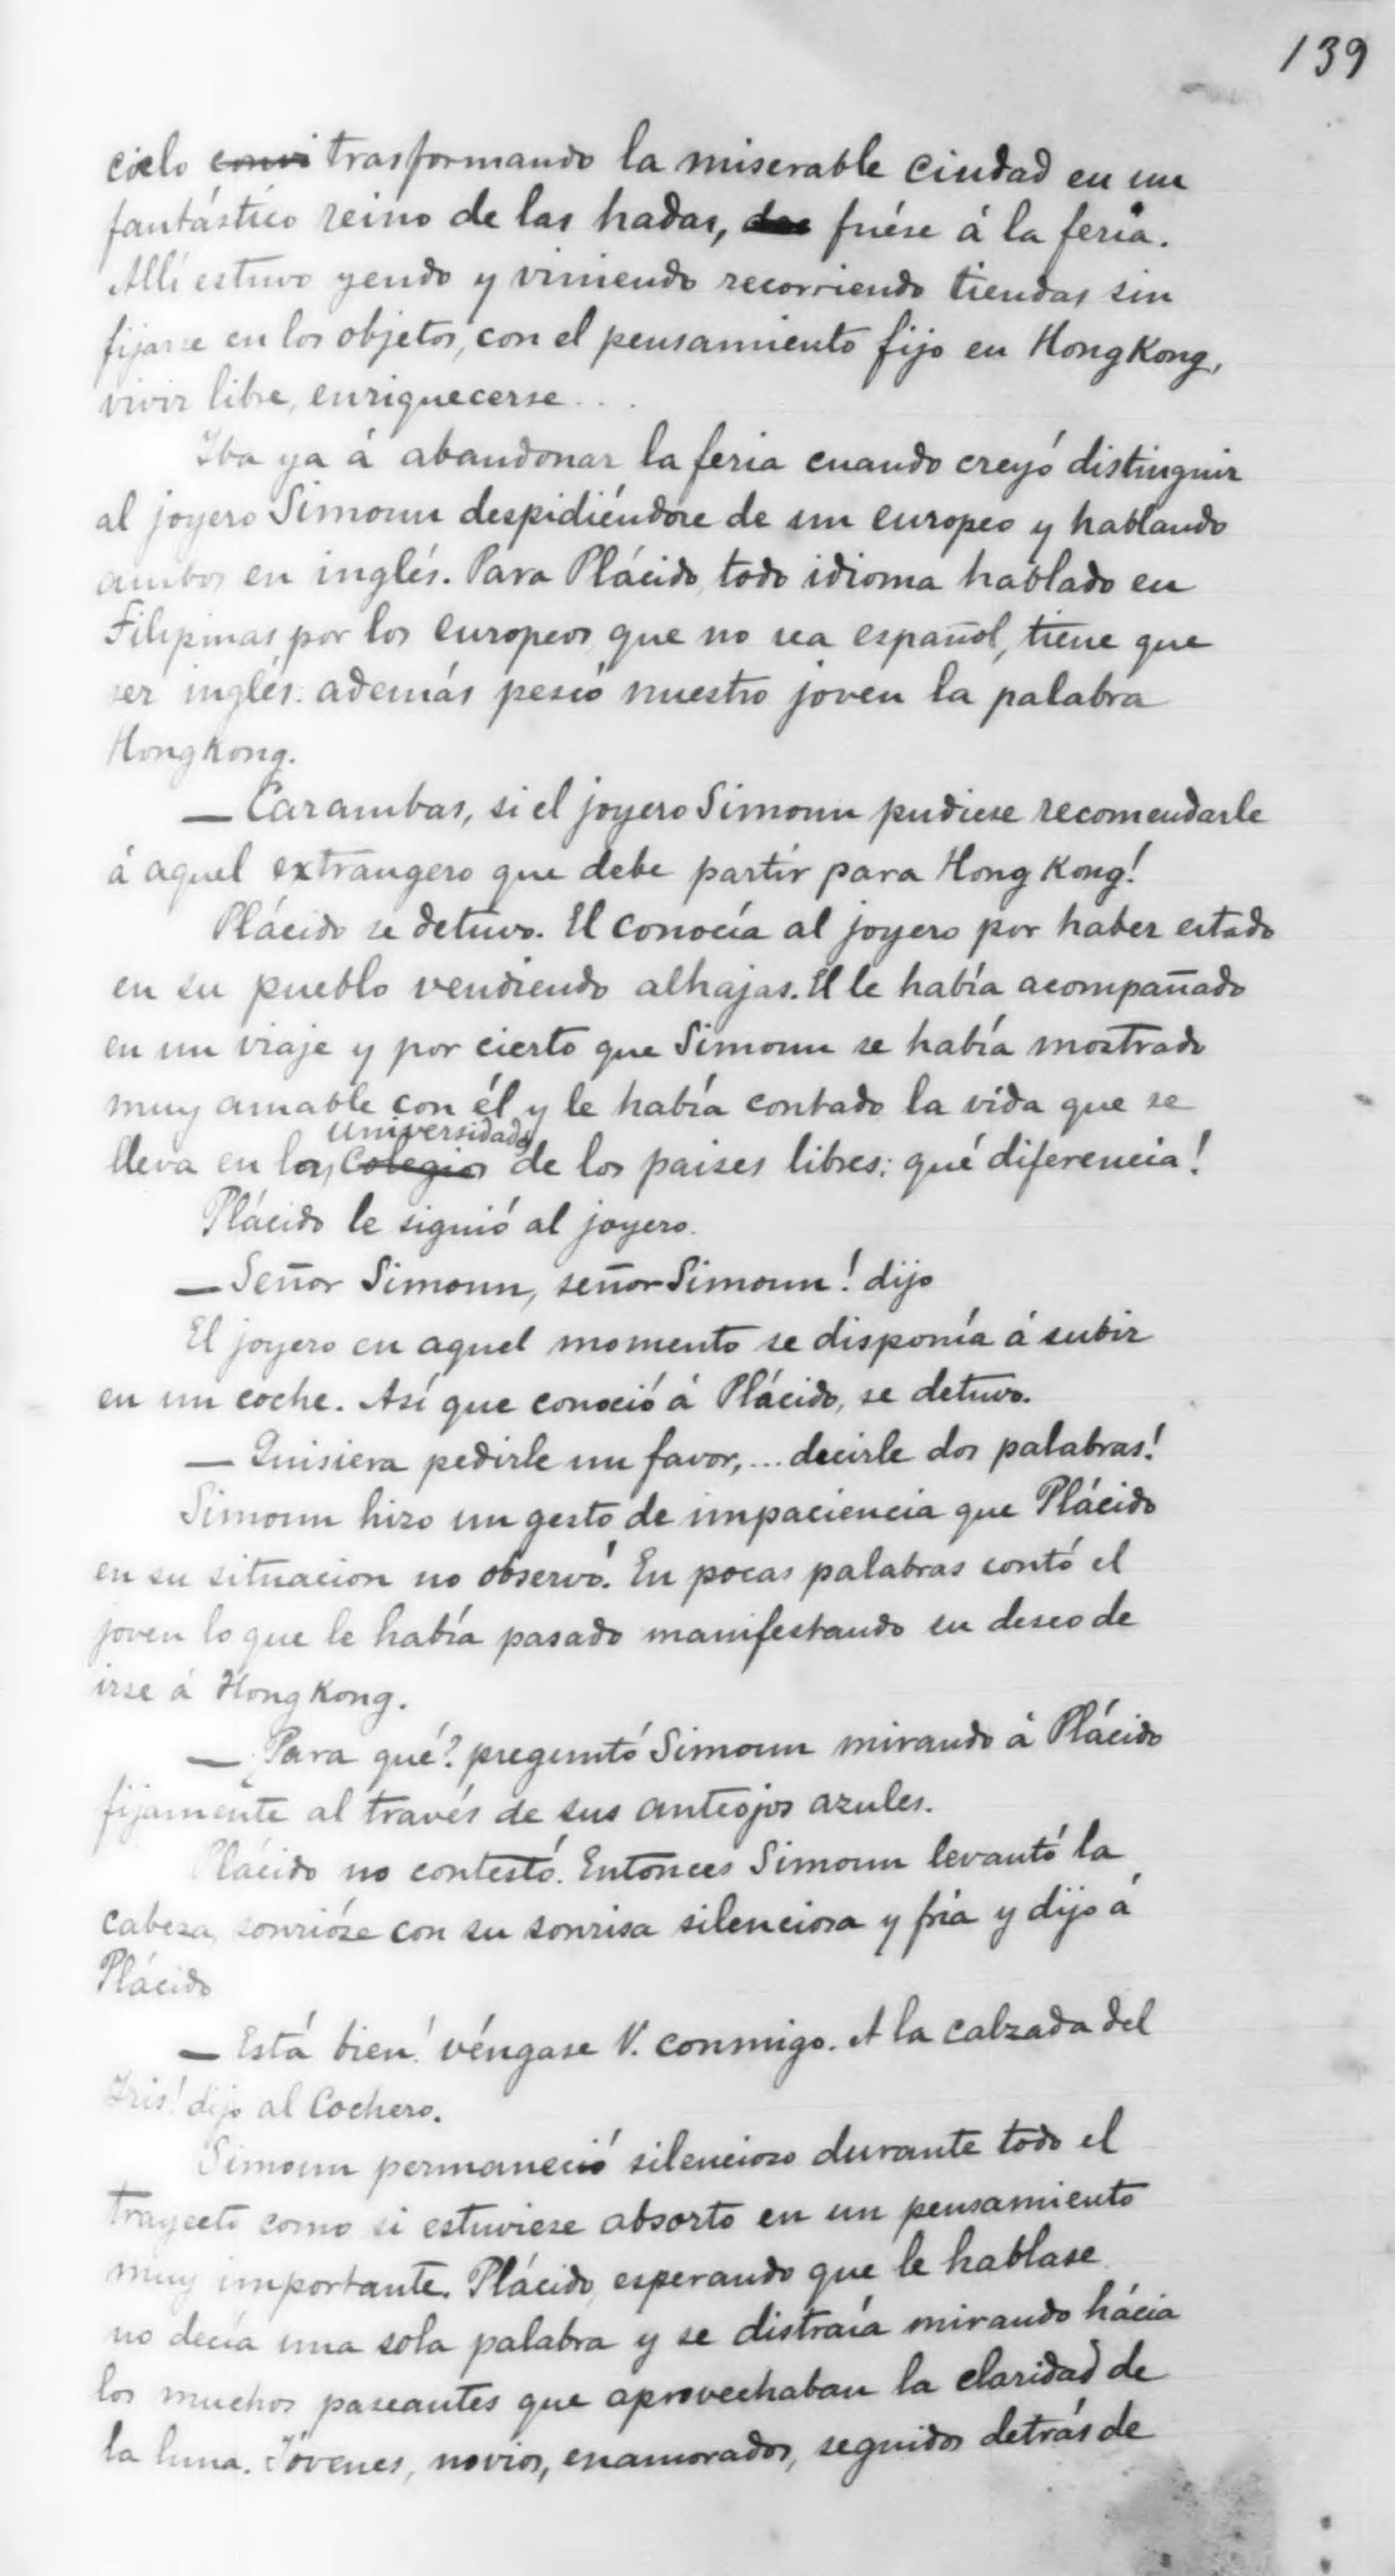 139
cielo convi trasformando la miserable ciudad en un
fantástico reino de las hadas, fuése á la feria.
Allí estuvo yendo y viniendo recorriendo tiendas sin
fijarse en los objetos, con el pensamiento fijo en HongKong,
vivir libre, enriquecerse...
Iba ya á abandonar la feria cuando creyó distinguir
al joyero Simoun despidiéndose de un europeo y hablando
ambos en inglés. Para Plácido, todo idioma hablado en
Filipinas por los europeos, que no sea español, tiene que
ser inglés: además pescó nuestro joven la palabra
Hongkong.
— Carambas, si el joyero Simoun pudiese recomendarle
á aquel extrangero que debe partir para Hong Kong!
Plácido se detuvo. El conocía al joyero por haber estado
en su pueblo vendiendo alhajas. El le había acompañado
en un viaje y por cierto que Simoun se había mostrado
muy amable con él y le había contado la vida que se
universidades
lleva en los colegios de los paises libres: qué diferencia!
Plácido le siguió al joyero.
— Señor Simoun, señor Simoun! dijo
El joyero en aquel momento se disponía á subir
en un coche. Así que conoció á Plácido, se detuvo.
— Quisiera pedirle un favor,... decirle dos palabras!
Simoun hizo un gesto de impaciencia que Plácido
en su situacion no observó. En pocas palabras contó el
joven lo que le había pasado manifestando su deseo de
irse á HongKong.
— ¿Para qué? preguntó Simoun mirando á Plácido
fijamente al través de sus anteojos azules.
Plácido no contestó. Entonces Simoun levantó la
cabeza, sonrióse con su sonrisa silenciosa y fría y dijo á
Plácido
— Está bien! véngase V. conmigo. A la calzada del
Iris! dijo al Cochero.
Simoun permaneció silencioso durante todo el
trayecto como si estuviese absorto en un pensamiento
muy importante. Plácido, esperando que le hablase
no decía una sola palabra y se distraía mirando hácia
los muchos paseantes que aprovechaban la claridad de
la luna. Jóvenes, novios, enamorados, seguidos detrás de